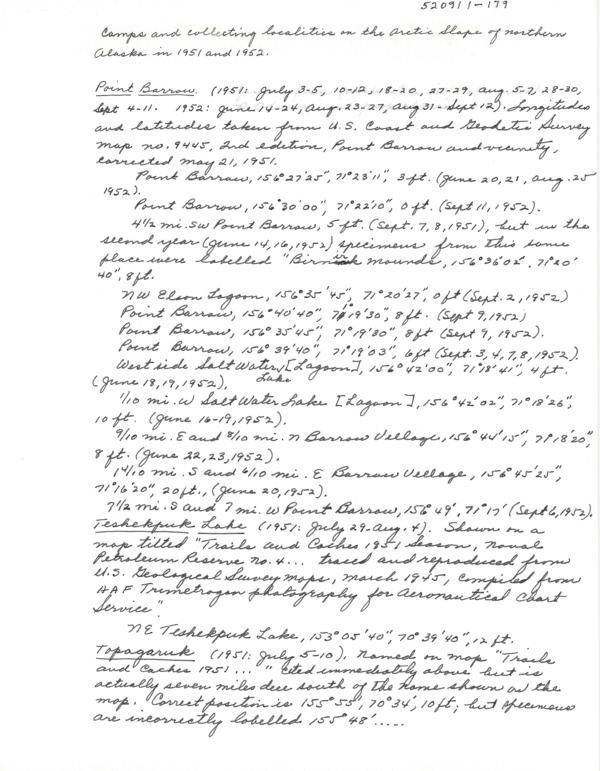 520911-179
Camps and collecting localities on the Arctic Slope of northern
Alaska in 1951 and 1952.
Point Barrow. (1951: July 3-5, 10-12, 18-20, 27-29, Aug. 5-7, 28-30,
Sept 4-11. 1952: June 14-24, Aug. 23-27, Aug 31 - Sept 12). Longitudes
and latitudes taken from U.S. Coast and Geodetic Survey
map no. 9445, 2nd edition, Point Barrow and vicinity,
corrected May 21, 1951.
Point Barrow, 156°27'25", 71°23'11", 3 ft. (June 20, 21, Aug. 25
1952).
Point Barrow, 156°30'00", 71°22'10", 0 ft. (Sept 11, 1952).
4 1/2 mi. SW Point Barrow, 5 ft. (Sept. 7, 8, 1951), but in the
second year (June 14, 16, 1952) specimens from this same
place were labelled "Birnirk mounds, 156°36'02", 71°20'
40", 8 ft.
NW Elson Lagoon, 156°35'45", 71°20'27", 0 ft (Sept. 2, 1952)
Point Barrow, 156°40'40", 71°19'30", 8 ft. (Sept 9, 1952)
Point Barrow, 156°35'45", 71°19'30", 8 ft (Sept 9, 1952).
Point Barrow, 156°39'40", 71°19'03", 6 ft (Sept. 3, 4, 7, 8, 1952).
West side Salt Water Lake [Lagoon], 156°42'00", 71°18'41", 4 ft.
(June 18, 19, 1952).
1/10 mi. W Salt Water Lake [Lagoon], 156°42'02", 71°18'26",
10 ft. (June 16-19, 1952).
9/10 mi. E and 8/10 mi. N Barrow Village, 156°44'15", 71°18'20",
8 ft. (June 22, 23, 1952).
1 4/10 mi. S and 6/10 mi. E Barrow Village, 156°45'25",
71°16'20", 20 ft., (June 20, 1952).
7 1/2 mi. S and 7 mi. W Point Barrow, 156°49', 71°17' (Sept 6, 1952).
Teshekpuk Lake (1951: July 29-Aug. 4). Shown on a
map titled "Trails and Caches 1951 Season, Naval
Petroleum Reserve No. 4... traced and reproduced from
U.S. Geological Survey maps, March 1945, compiled from
AAF Trimetrogon photography for Aeronautical Chart
Service".
NE Teshekpuk Lake, 153°05'40", 70°39'40", 12 ft.
Topagaruk (1951: July 5-10). Named on map "Trails
and Caches 1951 ... " cited immediately above but is
actually seven miles due south of the name shown on the
map. Correct position is 155°55', 70°34', 10 ft; but specimens
are incorrectly labelled 155°48'.....